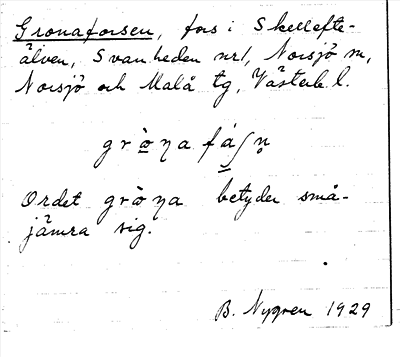 Gronaforsen, fors i Skellefte-
älven, Svanheden nr1, Norsjö sn,
Norsjö och Malå tg, Västerb. l.
Ordet betyder små-
jämra sig.
B. Nygren 1929